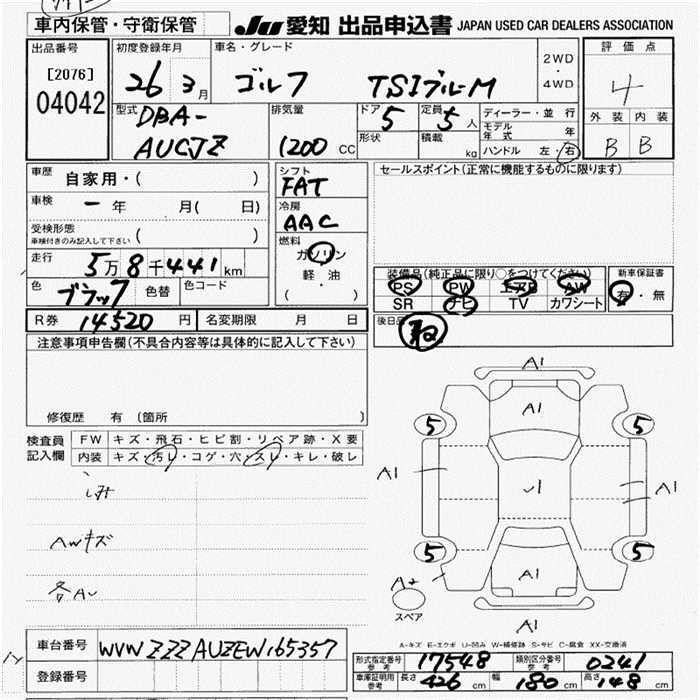 車内保管・守衛保管
JU 愛知 出品申込書 JAPAN USED CAR DEALERS ASSOCIATION
出品番号 初度登録年月 車名・グレード 評価点
[2076] 26 3月 ゴルフ TSIブルーM 2WD・4WD 4
04042
型式 DBA-AUCJZ 排気量 1200 CC ドア 5 定員 5人 ディーラー・並行 外装 内装
形状 積載 kg モデル年式 年 B B
ハンドル 左・右
車歴 自家用・( ) シフト FAT セールスポイント(正常に機能するものに限ります)
車検 ー年 月( 日) 冷房 AAC
受検形態 ( ) 燃料
車検付きのみ記入して下さい ガソリン
走行 5万8千441km 軽・油 装備品(純正品に限り○をつけてください) 新車保証書
( ・ ) PS PW エアB AW 有・無
色 ブラック 色替 色コード SR ナビ TV カワシート
R券 14520円 名変期限 月 日 後日品
注意事項申告欄(不具合内容等は具体的に記入して下さい)
修復歴 有 (箇所 )
検査員記入欄 FW キズ・飛石・ヒビ割・リペア跡・X要
内装 キズ・汚レ・コゲ・穴・スレ・キレ・破レ
AWキズ
各AU
A1
A1
5 5
A1 A1
5 5
A2 A1
スペア
A1
A-キズ E-エクボ U-凹み W-補修跡 S-サビ C-腐食 XX-交換済
車台番号 WVWZZZAUZEW165357
登録番号
形式指定番号 参考 17548 類別区分番号 参考 0241
車庫証明用 参考 長さ 426 cm 幅 180 cm 高さ 148 cm